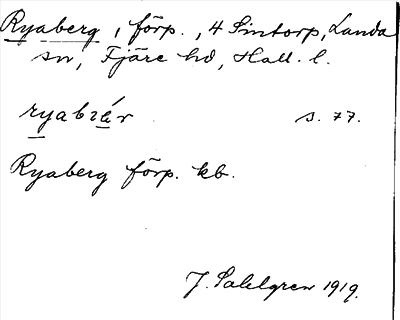 Ryaberg, förp., 4 Sintorp, Landa
sn, Fjäre hd, Hall. l.
ryabrǽr s. 77.
Ryaberg förp. kb.
J. Sahlgren 1919.